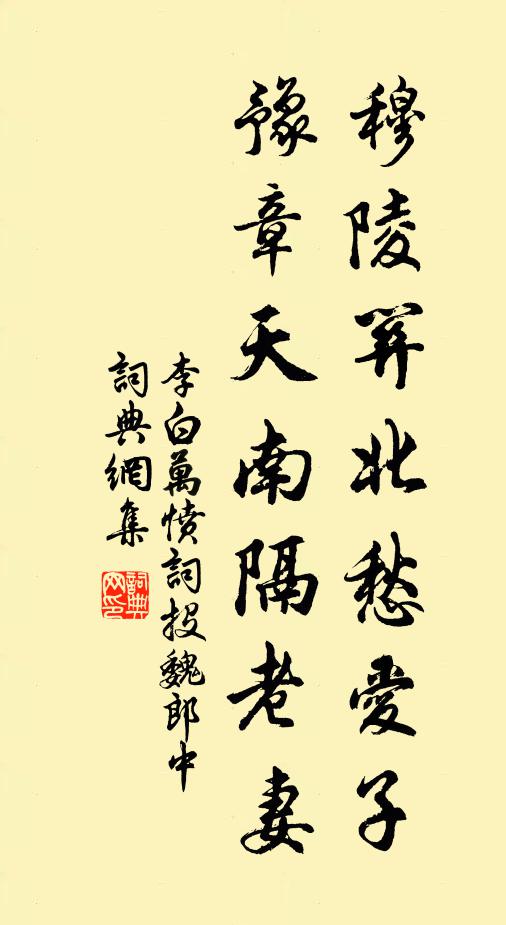 穆陵關北愁愛子
豫章天南隔老妻
李白萬憤詞投魏郎中
詞典網集
詞典网印